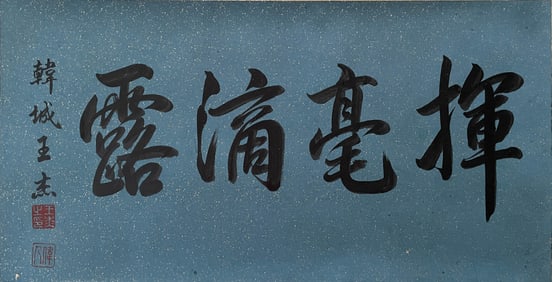 揮毫滴露
韓城王杰